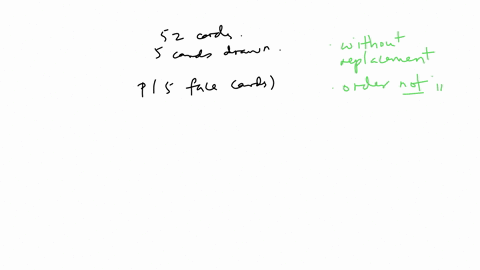 52 cards.
5 cards drawn.
P(5 face cards)
. without
replacement
. order not